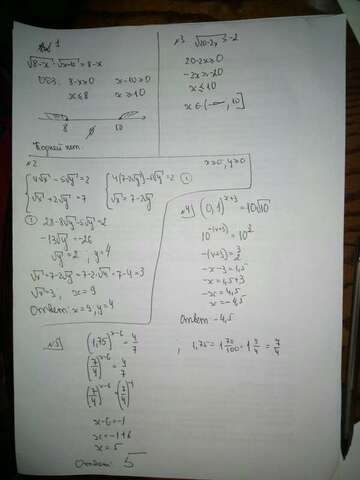 √8-x · √x-10 = 8-x
ОДЗ. 8-x≥0 x-10≥0
x≤8 x≥10
8 ∅ 10
Корней нет.
№3 √20-2x
20-2x≥0
-2x≥-20
x≤10
x∈(-∞, 10]
№2
x≥0, y≥0
4√x - 5√y = 2
√x + 2√y = 7
4(7-2√y) - 5√y = 2 ①
√x = 7-2√y
① 28-8√y-5√y = 2
-13√y = -26
√y = 2, y = 4
√x = 7-2√y = 7-2·√4 = 7-4 = 3
√x = 3, x = 9
Ответ: x = 9, y = 4
№4) (0,1)^(x+3) = 10√10
10^(-(x+3)) = 10^(3/2)
-(x+3) = 3/2
-x-3 = 1,5
-x = 1,5+3
-x = 4,5
x = -4,5
Ответ -4,5
№5) (1,75)^(x-6) = 4/7
, 1,75 = 1 75/100 = 1 3/4 = 7/4
(7/4)^(x-6) = 4/7
(7/4)^(x-6) = (7/4)^(-1)
x-6 = -1
x = -1+6
x = 5
Ответ: 5